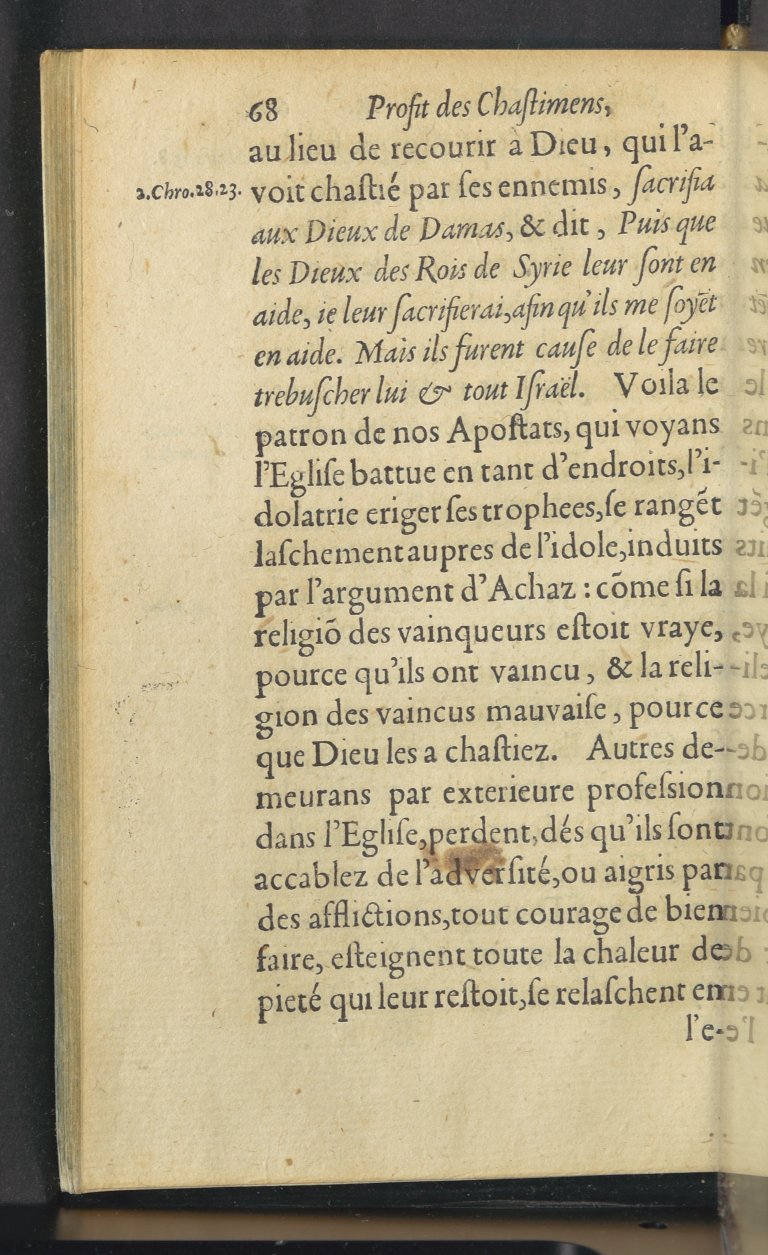 68 Profit des Chaſtimens,
au lieu de recourir à Dieu, qui l'a-
2.Chro.28.23. voit chaſtié par ſes ennemis, ſacrifia
aux Dieux de Damas, & dit, Puis que
les Dieux des Rois de Syrie leur ſont en
aide, ie leur ſacrifierai, afin qu'ils me ſoyẽt
en aide. Mais ils furent cauſe de le faire
trebuſcher lui & tout Iſraël. Voila le
patron de nos Apoſtats, qui voyans
l'Egliſe battue en tant d'endroits, l'i-
dolatrie eriger ſes trophees, ſe rangẽt
laſchement aupres de l'idole, induits
par l'argument d'Achaz : cõme ſi la
religiõ des vainqueurs eſtoit vraye,
pource qu'ils ont vaincu, & la reli-
gion des vaincus mauvaiſe, pource
que Dieu les a chaſtiez. Autres de-
meurans par exterieure profeſsion
dans l'Egliſe, perdent, dés qu'ils ſont
accablez de l'adverſité, ou aigris par
des afflictions, tout courage de bien
faire, eſteignent toute la chaleur de
pieté qui leur reſtoit, ſe relaſchent en
l'e-